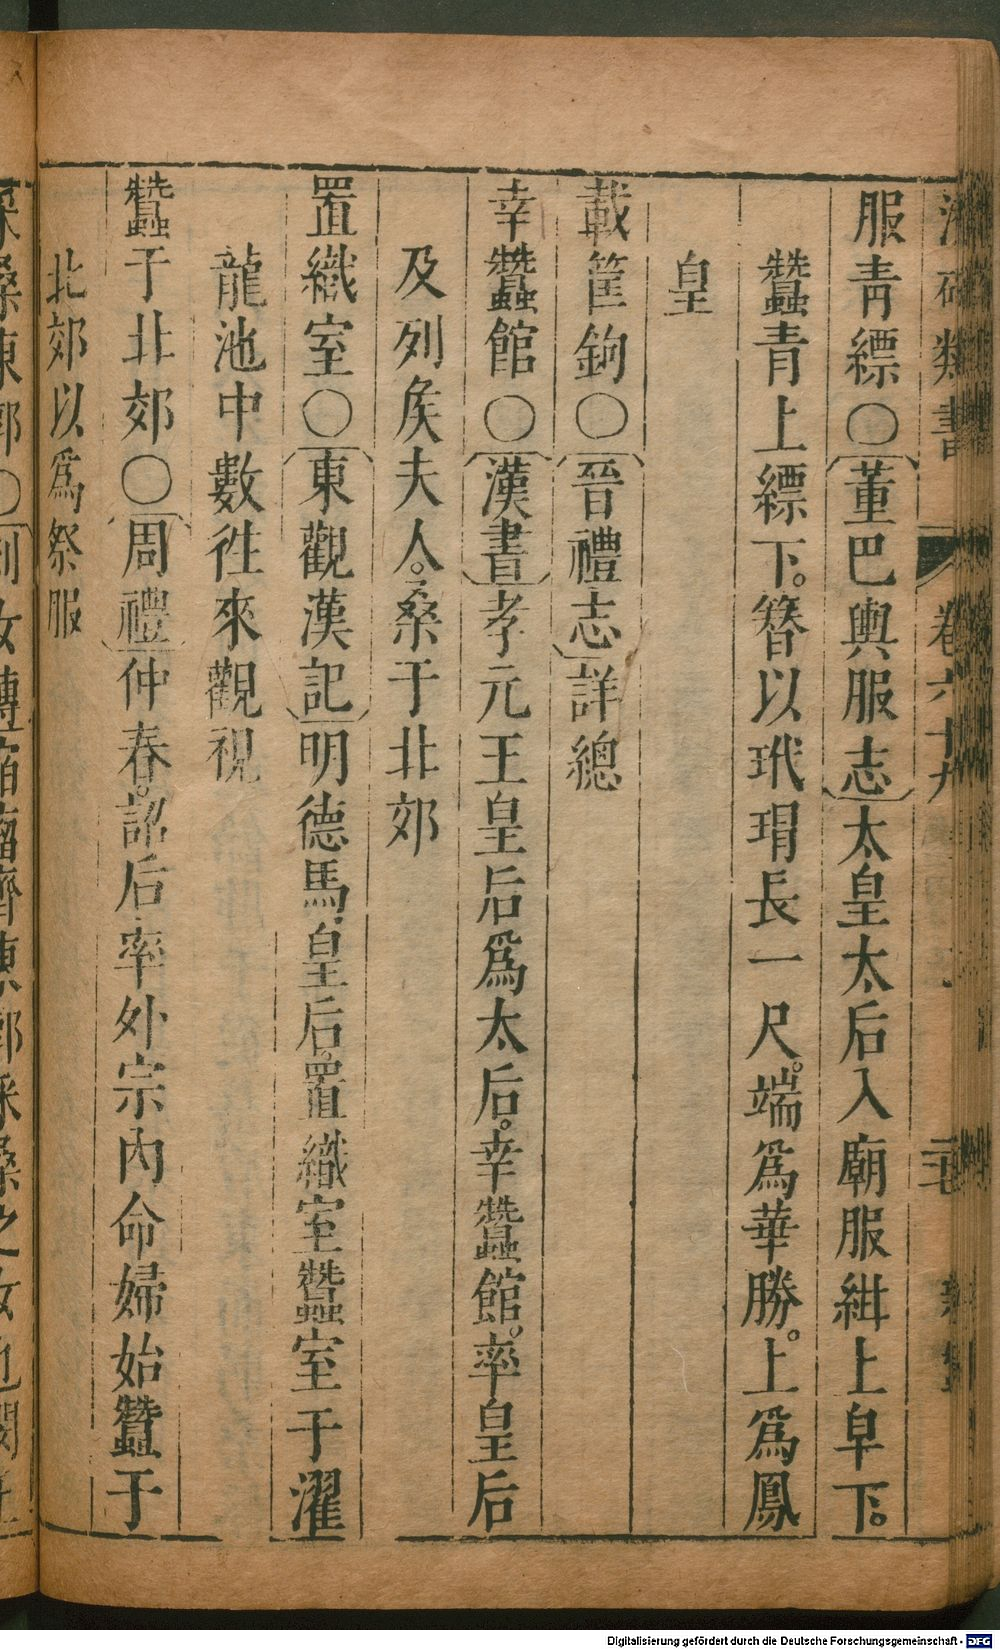 類書 卷六十九
服青縹〇董巴輿服志太皇太后入廟服紺上皁下。
蠶青上縹下。簪以玳瑁長一尺。端爲華勝。上爲鳳
皇
載筐鉤〇晉禮志詳總
幸蠶館〇漢書孝元王皇后爲太后。幸蠶館。率皇后
及列矦夫人。桑于北郊
置織室〇東觀漢記明德馬皇后。置織室蠶室于濯
龍池中數徃來觀視
蠶于北郊〇周禮仲春。詔后率外宗內命婦始蠶于
北郊以爲祭服
Digitalisierung gefördert durch die Deutsche Forschungsgemeinschaft - DFG